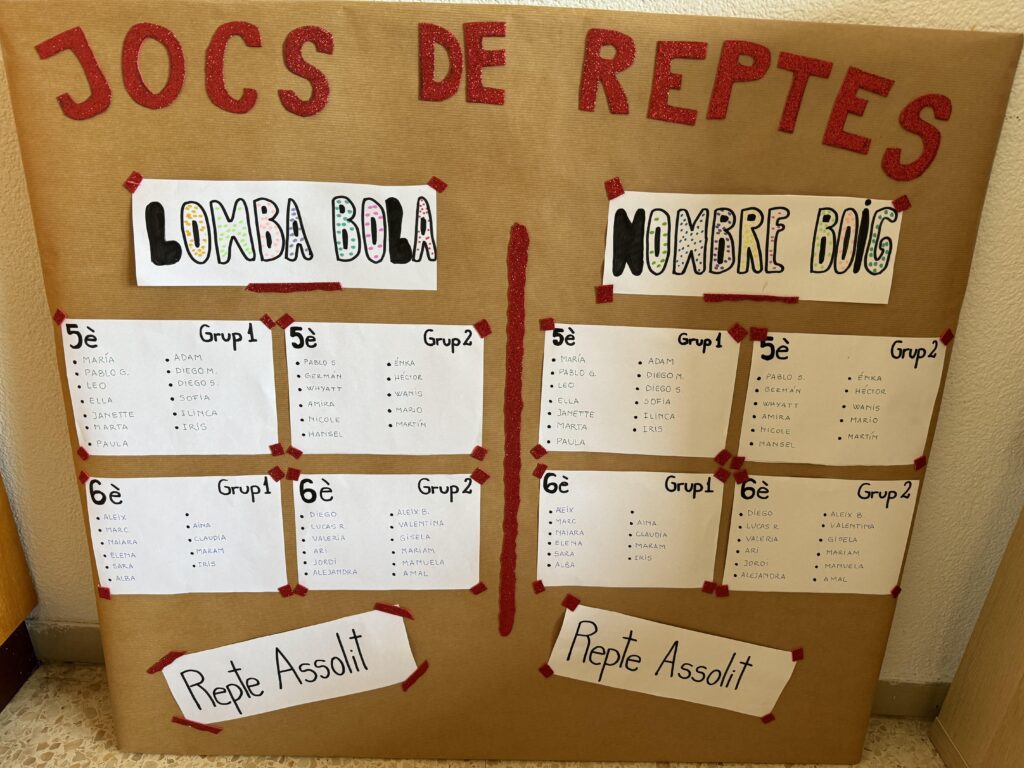 JOCS DE REPTES
LOMBA BOLA
NOMBRE BOIG
5è Grup 1
• MARÍA
• PABLO G.
• LEO
• ELLA
• JANETTE
• MARTA
• PAULA
• ADAM
• DIEGO M.
• DIEGO S.
• SOFIA
• ILINCA
• IRIS
5è Grup 2
• PABLO S.
• GERMÁN
• WHYATT
• AMIRA
• NICOLE
• HANSEL
• ÉNKA
• HÉCTOR
• WANIS
• MARIO
• MARTÍN
5è Grup 1
• MARÍA
• PABLO G.
• LEO
• ELLA
• JANETTE
• MARTA
• PAULA
• ADAM
• DIEGO M.
• DIEGO S.
• SOFIA
• ILINCA
• IRIS
5è Grup 2
• PABLO S.
• GERMÁN
• WHYATT
• AMIRA
• NICOLE
• HANSEL
• ÉNKA
• HÉCTOR
• WANIS
• MARIO
• MARTÍN
6è Grup 1
• ALEIX
• MARC
• NAIARA
• ELENA
• SARA
• ALBA
•
• AINA
• CLAUDIA
• MARAM
• IRIS
6è Grup 2
• DIEGO
• LUCAS R.
• VALERIA
• ARI
• JORDI
• ALEJANDRA
• ALEIX B.
• VALENTINA
• GISELA
• MARIAM
• MANUELA
• AMAL
6è Grup 1
• ALEIX
• MARC
• NAIARA
• ELENA
• SARA
• ALBA
•
• AINA
• CLAUDIA
• MARAM
• IRIS
6è Grup 2
• DIEGO
• LUCAS R.
• VALERIA
• ARI
• JORDI
• ALEJANDRA
• ALEIX B.
• VALENTINA
• GISELA
• MARIAM
• MANUELA
• AMAL
Repte Assolit
Repte Assolit